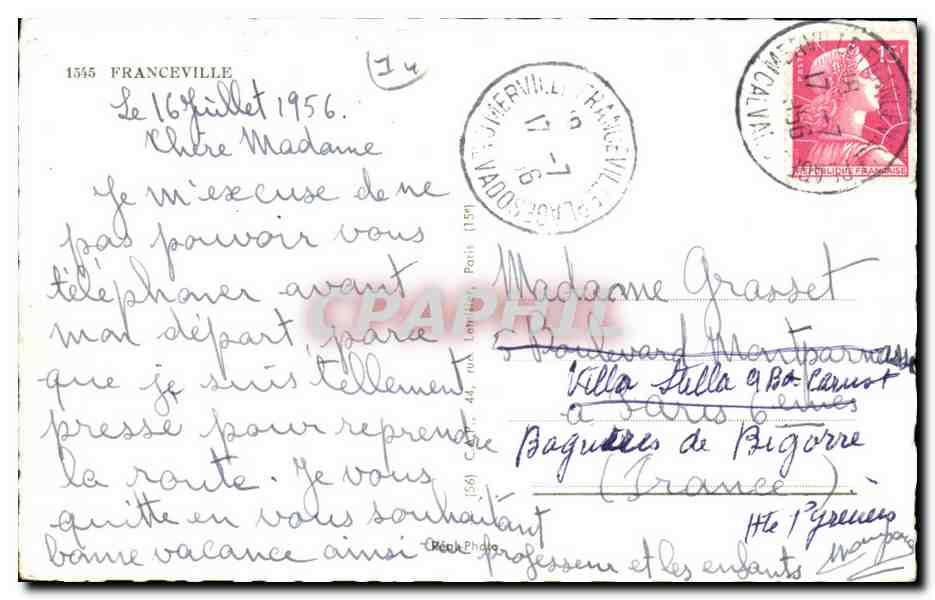 1545 FRANCEVILLE
Le 16 Juillet 1956.
Chère Madame
Je m'excuse de ne
pas pouvoir vous
téléphoner avant
mon départ, parce
que je suis tellement
pressé pour reprendre
la route. Je vous
quitte en vous souhaitant
bonne vacance ainsi professeur et les enfants
RÉPUBLIQUE FRANÇAISE
MERVILLE-FRANCEVILLE-PLAGE
CALVADOS
17 -7
1956
Madame Grasset
5 Boulevard Montparnasse
Villa Stella 9 Bd Carnot
à Paris 6 emes
Bagneres de Bigorre
(France).
Hte Pyrenees
44, rue Letellier, Paris (15e)
CPAPHIL